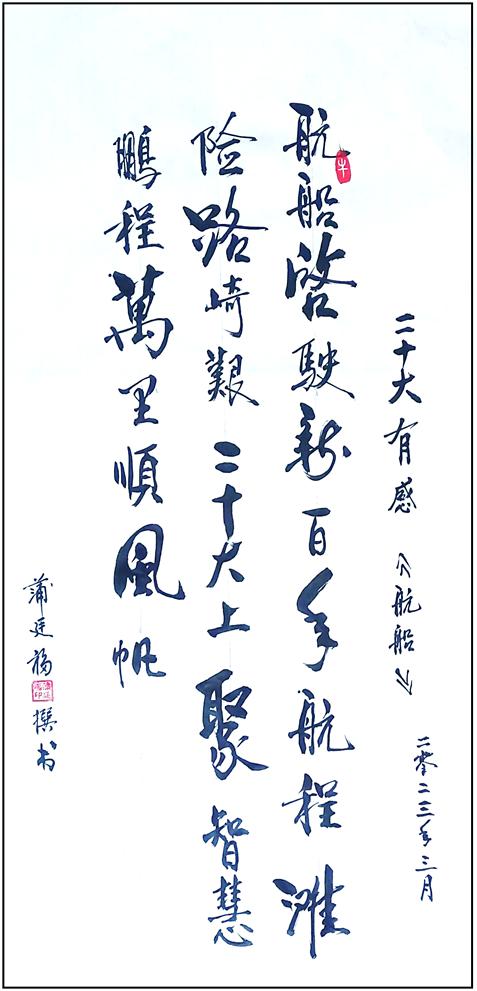 二十大有感 《航船》
二零二三年三月
航船啓駛新百年航程滩
险路崎艱二十大上聚智慧
鵬程萬里順風帆
蒲廷福 撰书